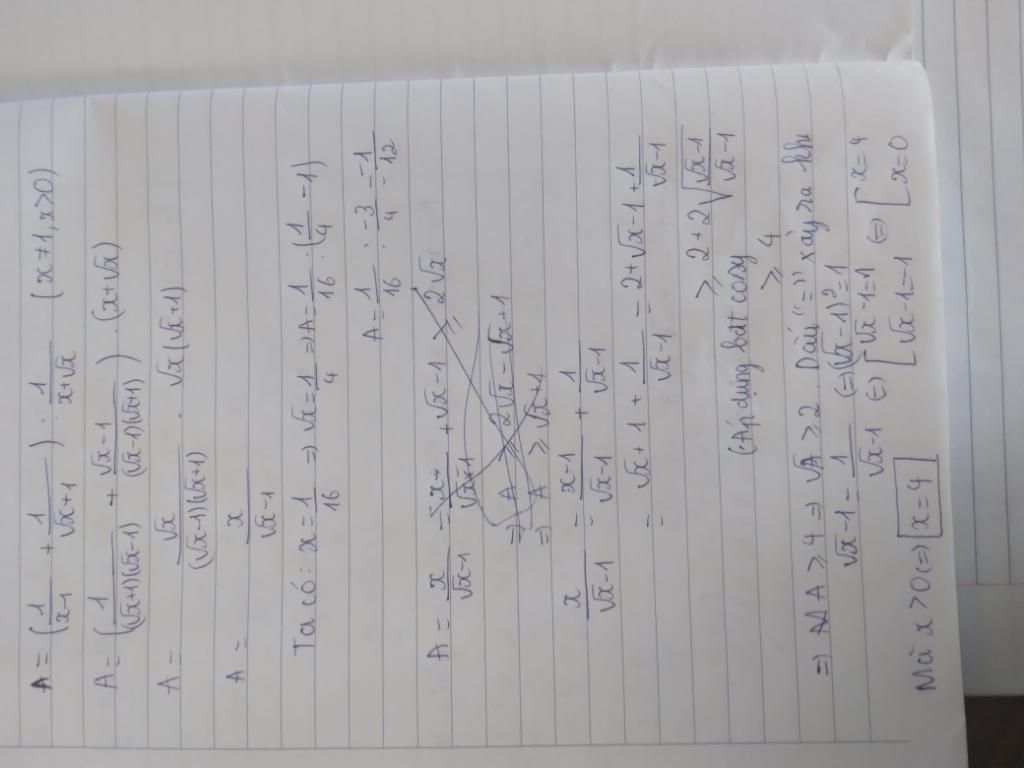 A = (1/(x-1) + 1/(√x+1)) . 1/(x+√x) (x≠1, x>0)
A = (1/((√x+1)(√x-1)) + (√x-1)/((√x-1)(√x+1))) . (x+√x)
A = √x/((√x-1)(√x+1)) . √x(√x+1)
A = x/(√x-1)
Ta có: x = 1/16 ⇒ √x = 1/4 ⇒ A = 1/16 : (1/4 - 1)
A = 1/16 : -3/4 = -1/12
A = x/(√x-1) = + √x-1 ≥ 2√x
⇒ A ≥ 2√x - √x+1
⇒ A ≥ √x+1
x/(√x-1) = (x-1)/(√x-1) + 1/(√x-1)
= √x+1 + 1/(√x-1) = 2+√x-1+1/(√x-1)
≥ 2+2√((√x-1)/(√x-1))
(Áp dụng bđt cosy
≥ 4
⇒ A ≥ 4 ⇒ √A ≥ 2. Dấu "=" xảy ra khi
√x-1 = 1/(√x-1) ⇔ (√x-1)²=1
⇔ [ √x-1=1 ; √x-1=-1 ⇔ [ x=4 ; x=0
Mà x>0 ⇔ x=4